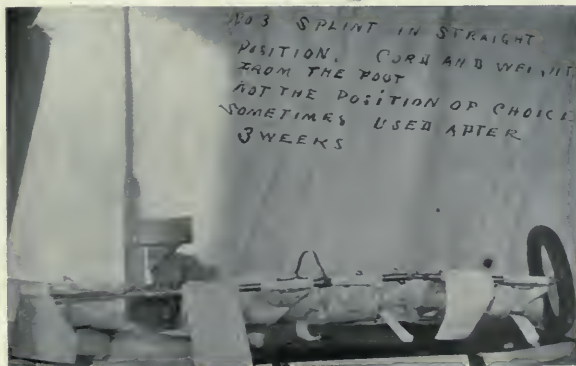 NO 3 SPLINT IN STRAIGHT
POSITION. CORD AND WEIGHT
FROM THE FOOT
NOT THE POSITION OF CHOICE
SOMETIMES USED AFTER
3 WEEKS